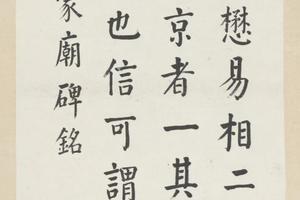 懋易相二
京者一其
也信可謂
家廟碑銘